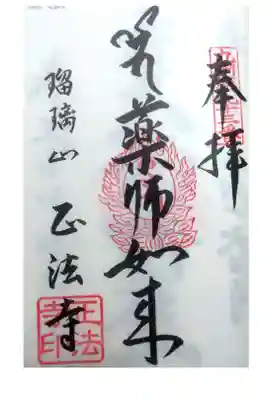 奉拝
薬師如来
瑠璃山 正法寺
正法
寺印